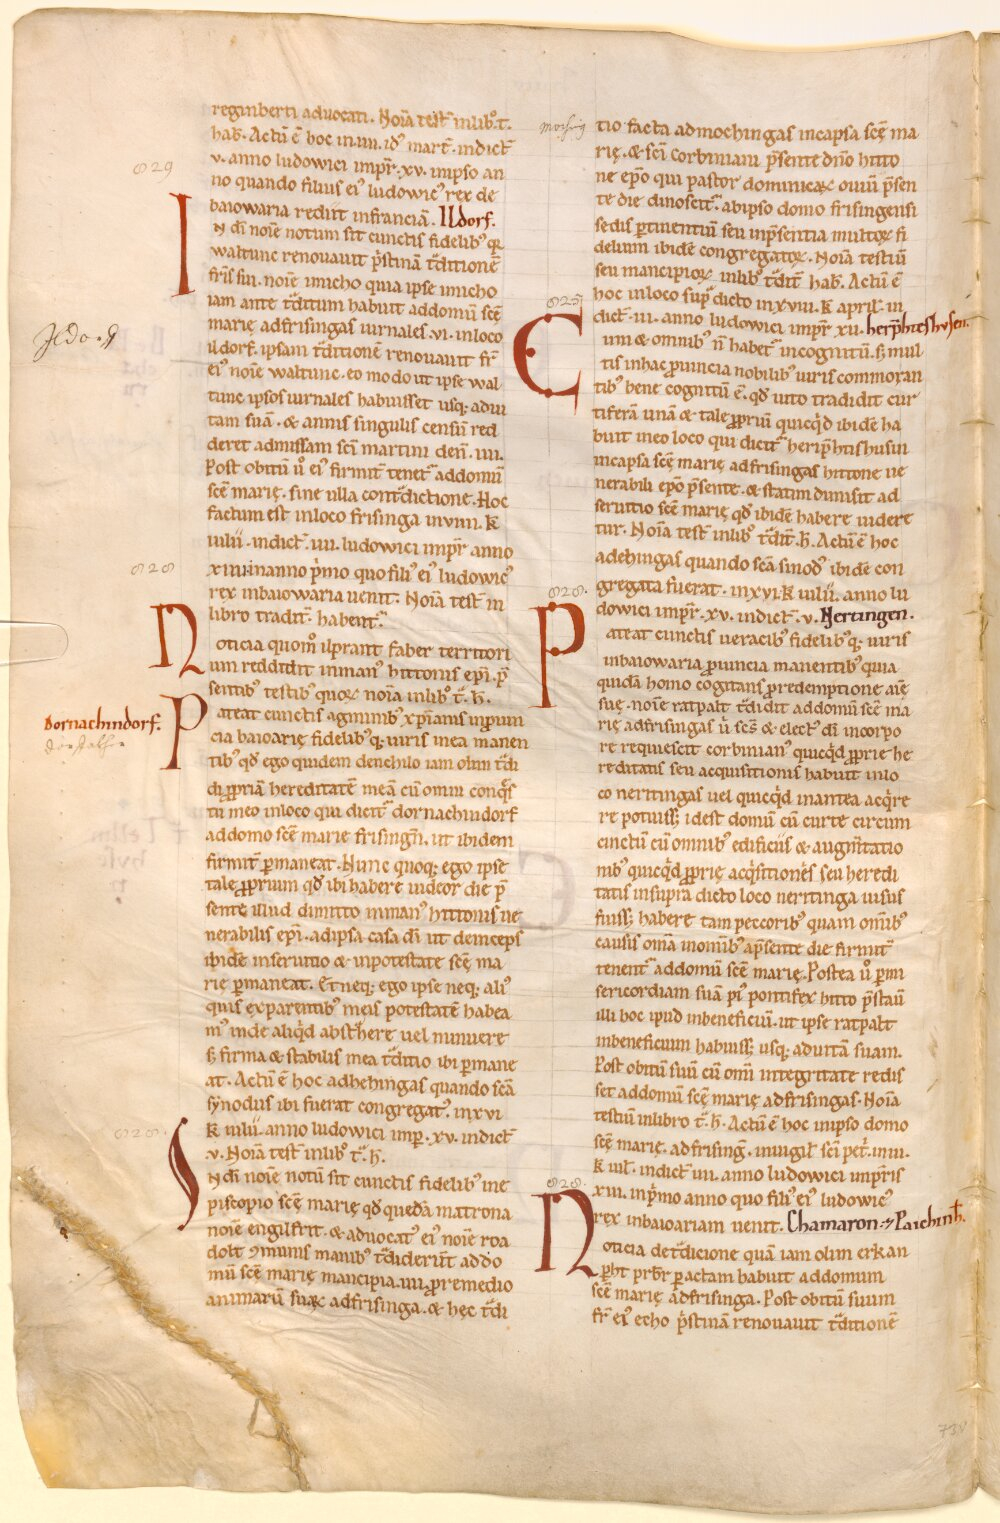 reginberti advocati. Noīa test̄ inlib᷒. t̄.
hab̄. Actū ē hoc in.iiii. id᷒ mart̄. indict̄
829
v. anno ludovici impr̄. xv. inipso an
no quando filius ei᷒ ludowic᷒ rex de
baiowaria rediit infranciā. Ildorf.
IN dī noīe notum sit cunctis fidelib᷒ qr̄
waltunc renovavit p̄stinā t̄ditionē
fr̄is sui. noīe imicho quia ipse imicho
iam ante t̄ditum habuit addomū scē
marię adfrisingas iurnales. vi. inloco
ildorf. ipsam t̄ditionē renovavit fr̄
ei᷒ noīe waltunc. eo modo ut ipse wal
tunc ipsos iurnales habuisset usq; adui
tam suā. & annis singulis censū red
deret admissam scī martini deñ. iiii.
Post obitū u̅ ei᷒ firmit̄ tenet̄ addomū
scē marię. sine ulla cont̄dictione. Hoc
factum est inloco frisinga inviiii. k̄
iulii. indict̄. iiii. ludowici impr̄ anno
828
xiiii inanno p̄mo quo fili᷒ ei᷒ ludowic᷒
rex inbaiowaria uenit. Noīa test̄ in
libro tradit̄. habent̄.
Noticia quom̄ ilprant faber territori
um reddidit inman᷒ hittonis ep̄i. p̄
sentib᷒ testib᷒ quoꝝ noīa inlib᷒ t̄. h̄.
Dornachindorf.
Pateat cunctis agminib᷒ xp̄ianis inp̄uin
cia baioarię fidelib᷒ q; uiris inea manen
tib᷒ qd̄ ego quidem denchilo iam olim t̄di
di ꝓpriā hereditatē meā cū omni conq̄s
tu meo inloco qui dicit̄ dornachindorf
addomo scē marie frisingn̄. ut ibidem
firmit̄ p̄maneat. Nunc quoq; ego ipse
tale ꝓprium qd̄ ibi habere uideor die p̄
sente illud dimitto inman᷒ hittonis ue
nerabilis ep̄i. adipsa casa dī ut deinceps
ibidē inseruitio & inpotestate scē ma
rię p̄maneat. Et neq; ego ipse neq; ali᷒
quis exparentib᷒ meis potestatē habea
m᷒ inde aliq̄d abst̄here uel minuere
s; firma & stabilis mea t̄ditio ibi p̄mane
at. Actū ē hoc adhehingas quando scā
synodus ibi fuerat congregat᷒. inxvi
k̄ iulii. anno ludowici imp̄. xv. indict̄
.v. Noīa test̄ inlib᷒ t̄. h̄.
828.
IN dī noīe notū sit cunctis fidelib᷒ ine
piscopio scē marię qd̄ quedā matrona
noīe engilfrit. & advocat᷒ ei᷒ noīe roa
dolt ꝯmunis manib᷒ t̄diderūt addo
mū scē marię mancipia. iiii. ꝓremedio
animarū suaꝝ adfrisinga. & hęc t̄di
tio facta admochingas incapsa scē ma
rię. & scī corbiniani p̄sente dn̄o hitto
ne ep̄o qui pastor dominicaꝝ ouiū p̄sen
te die dinoscit̄. abipso domo frisingensi
sedis p̄tinentiū seu inp̄sentia multoꝝ fi
delium ibidē congregatoꝝ. Noīa testiū
seu mancipioꝝ inlib᷒ t̄dit̄ hab̄. Actū ē
hoc inloco sup̄ dicto inxviii. k̄ april. in
dict̄. iii. anno ludowici impr̄ xii. heripħteshusen.
Cum & omnib᷒ n̄ habet̄ incognitū. s; mul
tis inhac ꝓuincia nobilib᷒ uiris commoran
tib᷒ bene cognitū ē. qd̄ uuto tradidit cur
tiferā unā & tale ꝓpriū quicq̄d ibidē ha
buit ineo loco qui dicit̄ heripħtishusin
incapsa scē marię adfrisingas hittone ue
nerabili ep̄o p̄sente. & statim dimisit ad
seruitio scē marię qd̄ ibidē habere uidere
tur. Noīa test̄ inlib᷒ t̄dit̄. h̄. Actū ē hoc
adehingas quando scā sinod᷒ ibidē con
828.
gregata fuerat. inxvi. k̄ iulii. anno lu
dowici impr̄. xv. indict̄. v. Nertingen.
Pateat cunctis ueracib᷒ fidelib᷒ q; uiris
inbaiowaria ꝓuincia manentib᷒ quia
quidā homo cogitans ꝓredemptione anį̄
suę. noīe ratpalt t̄didit addomū scē ma
rię adfrisingas u̅ scs̄ & elect᷒ dī incorpo
re requiescit corbinian᷒ quicq̄d ꝓprie he
reditatis seu acquisitionis habuit inlo
co neritingas uel quicq̄d inantea acq̄re
re potuiss; idest domū cū curte circum
cinctū cū omnib᷒ edificiis & augm̄tatio
nib᷒ quicq̄d ꝓprię acq̄sitionēs seu heredi
tatis insupra dicto loco neritinga iusus
fuiss; habere tam peccorib᷒ quam omīb᷒
causis omīa inomīb᷒ ap̄sente die firmit̄
tenent̄ addomū scē marię. Postea u̅ p̄mi
sericordiam suā pi᷒ pontifex hitto p̄stau̅
illi hoc ipud inbeneficiū. ut ipse ratpalt
inbeneficium habuiss; usq; aduitā suam.
Post obitū suū cū omī integritate redis
set addomū scē marię adfrisingas. Noīa
testiū inlibro t̄. h̄. Actū ē hoc inipso domo
scē marię. adfrising̅. inuigil scī pet̄. iniii.
k̄ iul. indict̄ iiii. anno ludowici impr̄is
828.
xiii. inp̄mo anno quo fili᷒ ei᷒ ludowic᷒
rex inbaioariam uenit. Chamaron. & Paichinħ.
Noticia det̄dicione quā iam olim erkan
p̄ht pr̄br̄ p̄actam habuit addomum
scē marię adfrisinga. Post obitū suum
fr̄ ei᷒ echo p̄stinā renouauit t̄ditionē